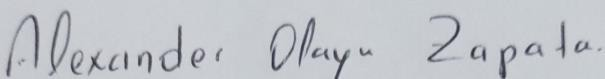 Alexander Olaya Zapata.